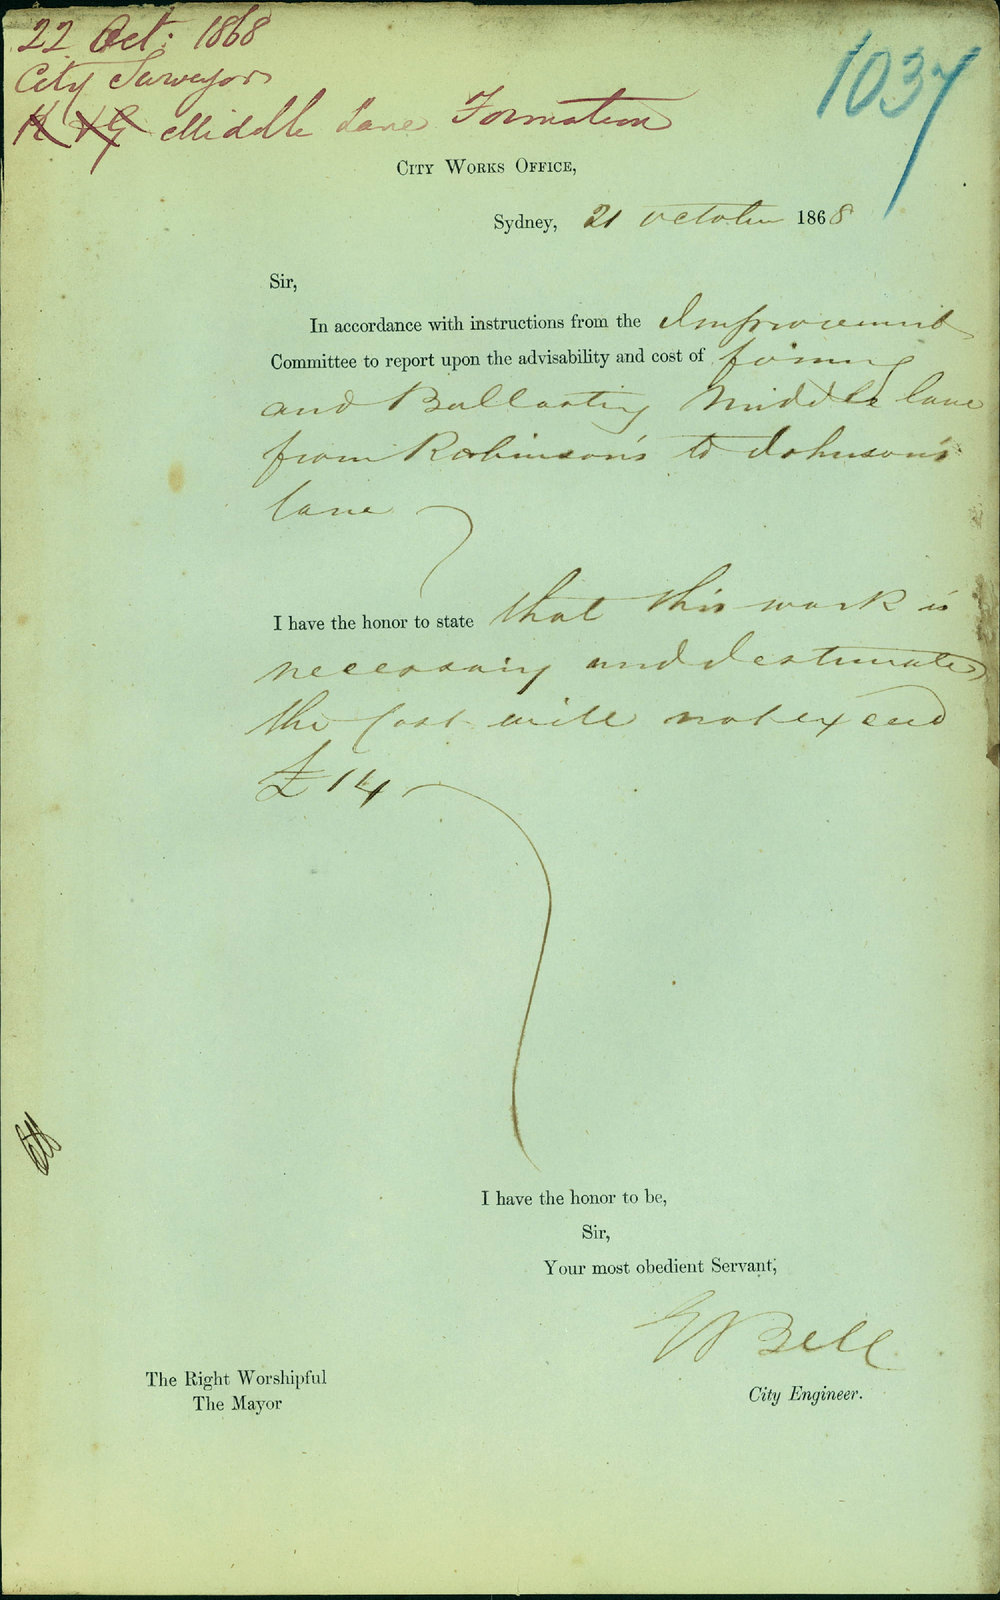 22 Oct: 1868
City Surveyor
Middle Lane Formation
1037
CITY WORKS OFFICE,
Sydney, 21 October 1868
Sir,
In accordance with instructions from the Improvement
Committee to report upon the advisability and cost of forming
and Ballasting Middle lane
from Robinson's to Johnson's
lane
I have the honor to state that this work is
necessary and I estimate
the cost will not exceed
£14
I have the honor to be,
Sir,
Your most obedient Servant,
E Bell
City Engineer.
The Right Worshipful
The Mayor